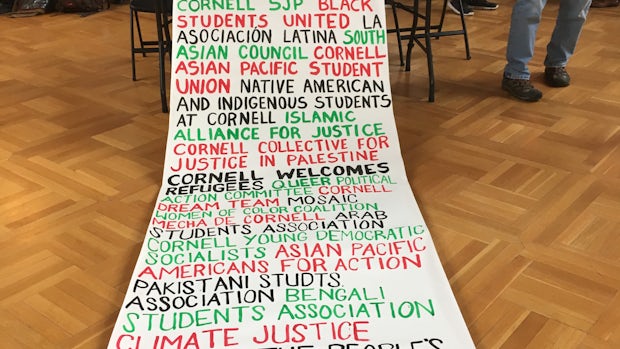 CORNELL SJP BLACK
STUDENTS UNITED LA
ASOCIACIÓN LATINA SOUTH
ASIAN COUNCIL CORNELL
ASIAN PACIFIC STUDENT
UNION NATIVE AMERICAN
AND INDIGENOUS STUDENTS
AT CORNELL ISLAMIC
ALLIANCE FOR JUSTICE
CORNELL COLLECTIVE FOR
JUSTICE IN PALESTINE
CORNELL WELCOMES
REFUGEES QUEER POLITICAL
ACTION COMMITTEE CORNELL
DREAM TEAM MOSAIC
WOMEN OF COLOR COALITION
MECHA DE CORNELL ARAB
STUDENTS ASSOCIATION
CORNELL YOUNG DEMOCRATIC
SOCIALISTS ASIAN PACIFIC
AMERICANS FOR ACTION
PAKISTANI STUDTS.
ASSOCIATION BENGALI
STUDENTS ASSOCIATION
CLIMATE JUSTICE
THE PEOPLE'S